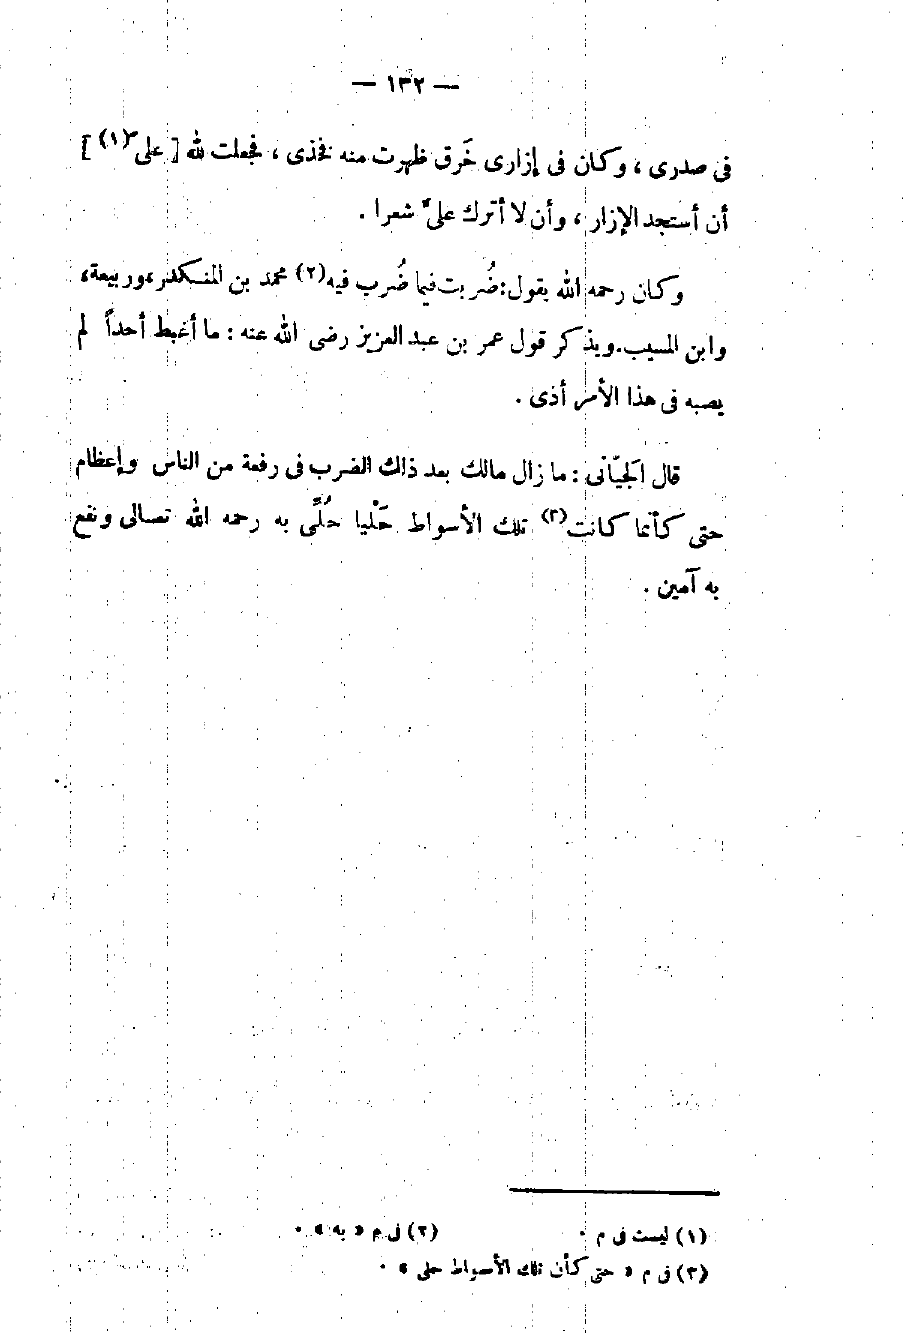 — ١٣٢ —
فى صدرى ، وكان فى إزارى خَرق ظهرت منه فخذى ، فجعلت لله [ علىّ (١) ]
أن أستجد الإزار ، وأن لا أترك علىّ شعرا .
وكان رحمه الله يقول : ضُربت فيما ضُرب فيه (٢) محمد بن المنكدر ، وربيعة ،
وابن المسيب . ويذكر قول عمر بن عبد العزيز رضى الله عنه : ما أغبط أحداً لم
يصبه فى هذا الأمر أذى .
قال الجيّانى : ما زال مالك بعد ذلك الضرب فى رفعة من الناس وإعظام
حتى كأنما كانت (٣) تلك الأسواط حَلْيا حُلِّى به رحمه الله تعالى ونفع
به آمين .
(١) ليست فى م . (٢) فى م « به » .
(٣) فى م « حتى كأن تلك الأسواط حلى » .